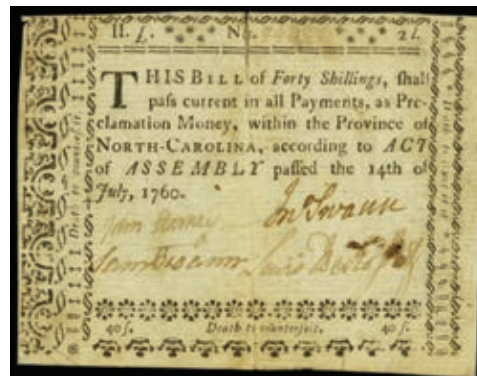 II. L. No. 2l.
THIS BILL of Forty Shillings, shall
paſs current in all Payments, as Pro-
clamation Money, within the Province of
NORTH-CAROLINA, according to ACT
of ASSEMBLY paſſed the 14th of
July, 1760.
Jn Swann
Sam Swann Lewis
40 ſ. Death to counterfeit. 40 ſ.
Death to counterfeit